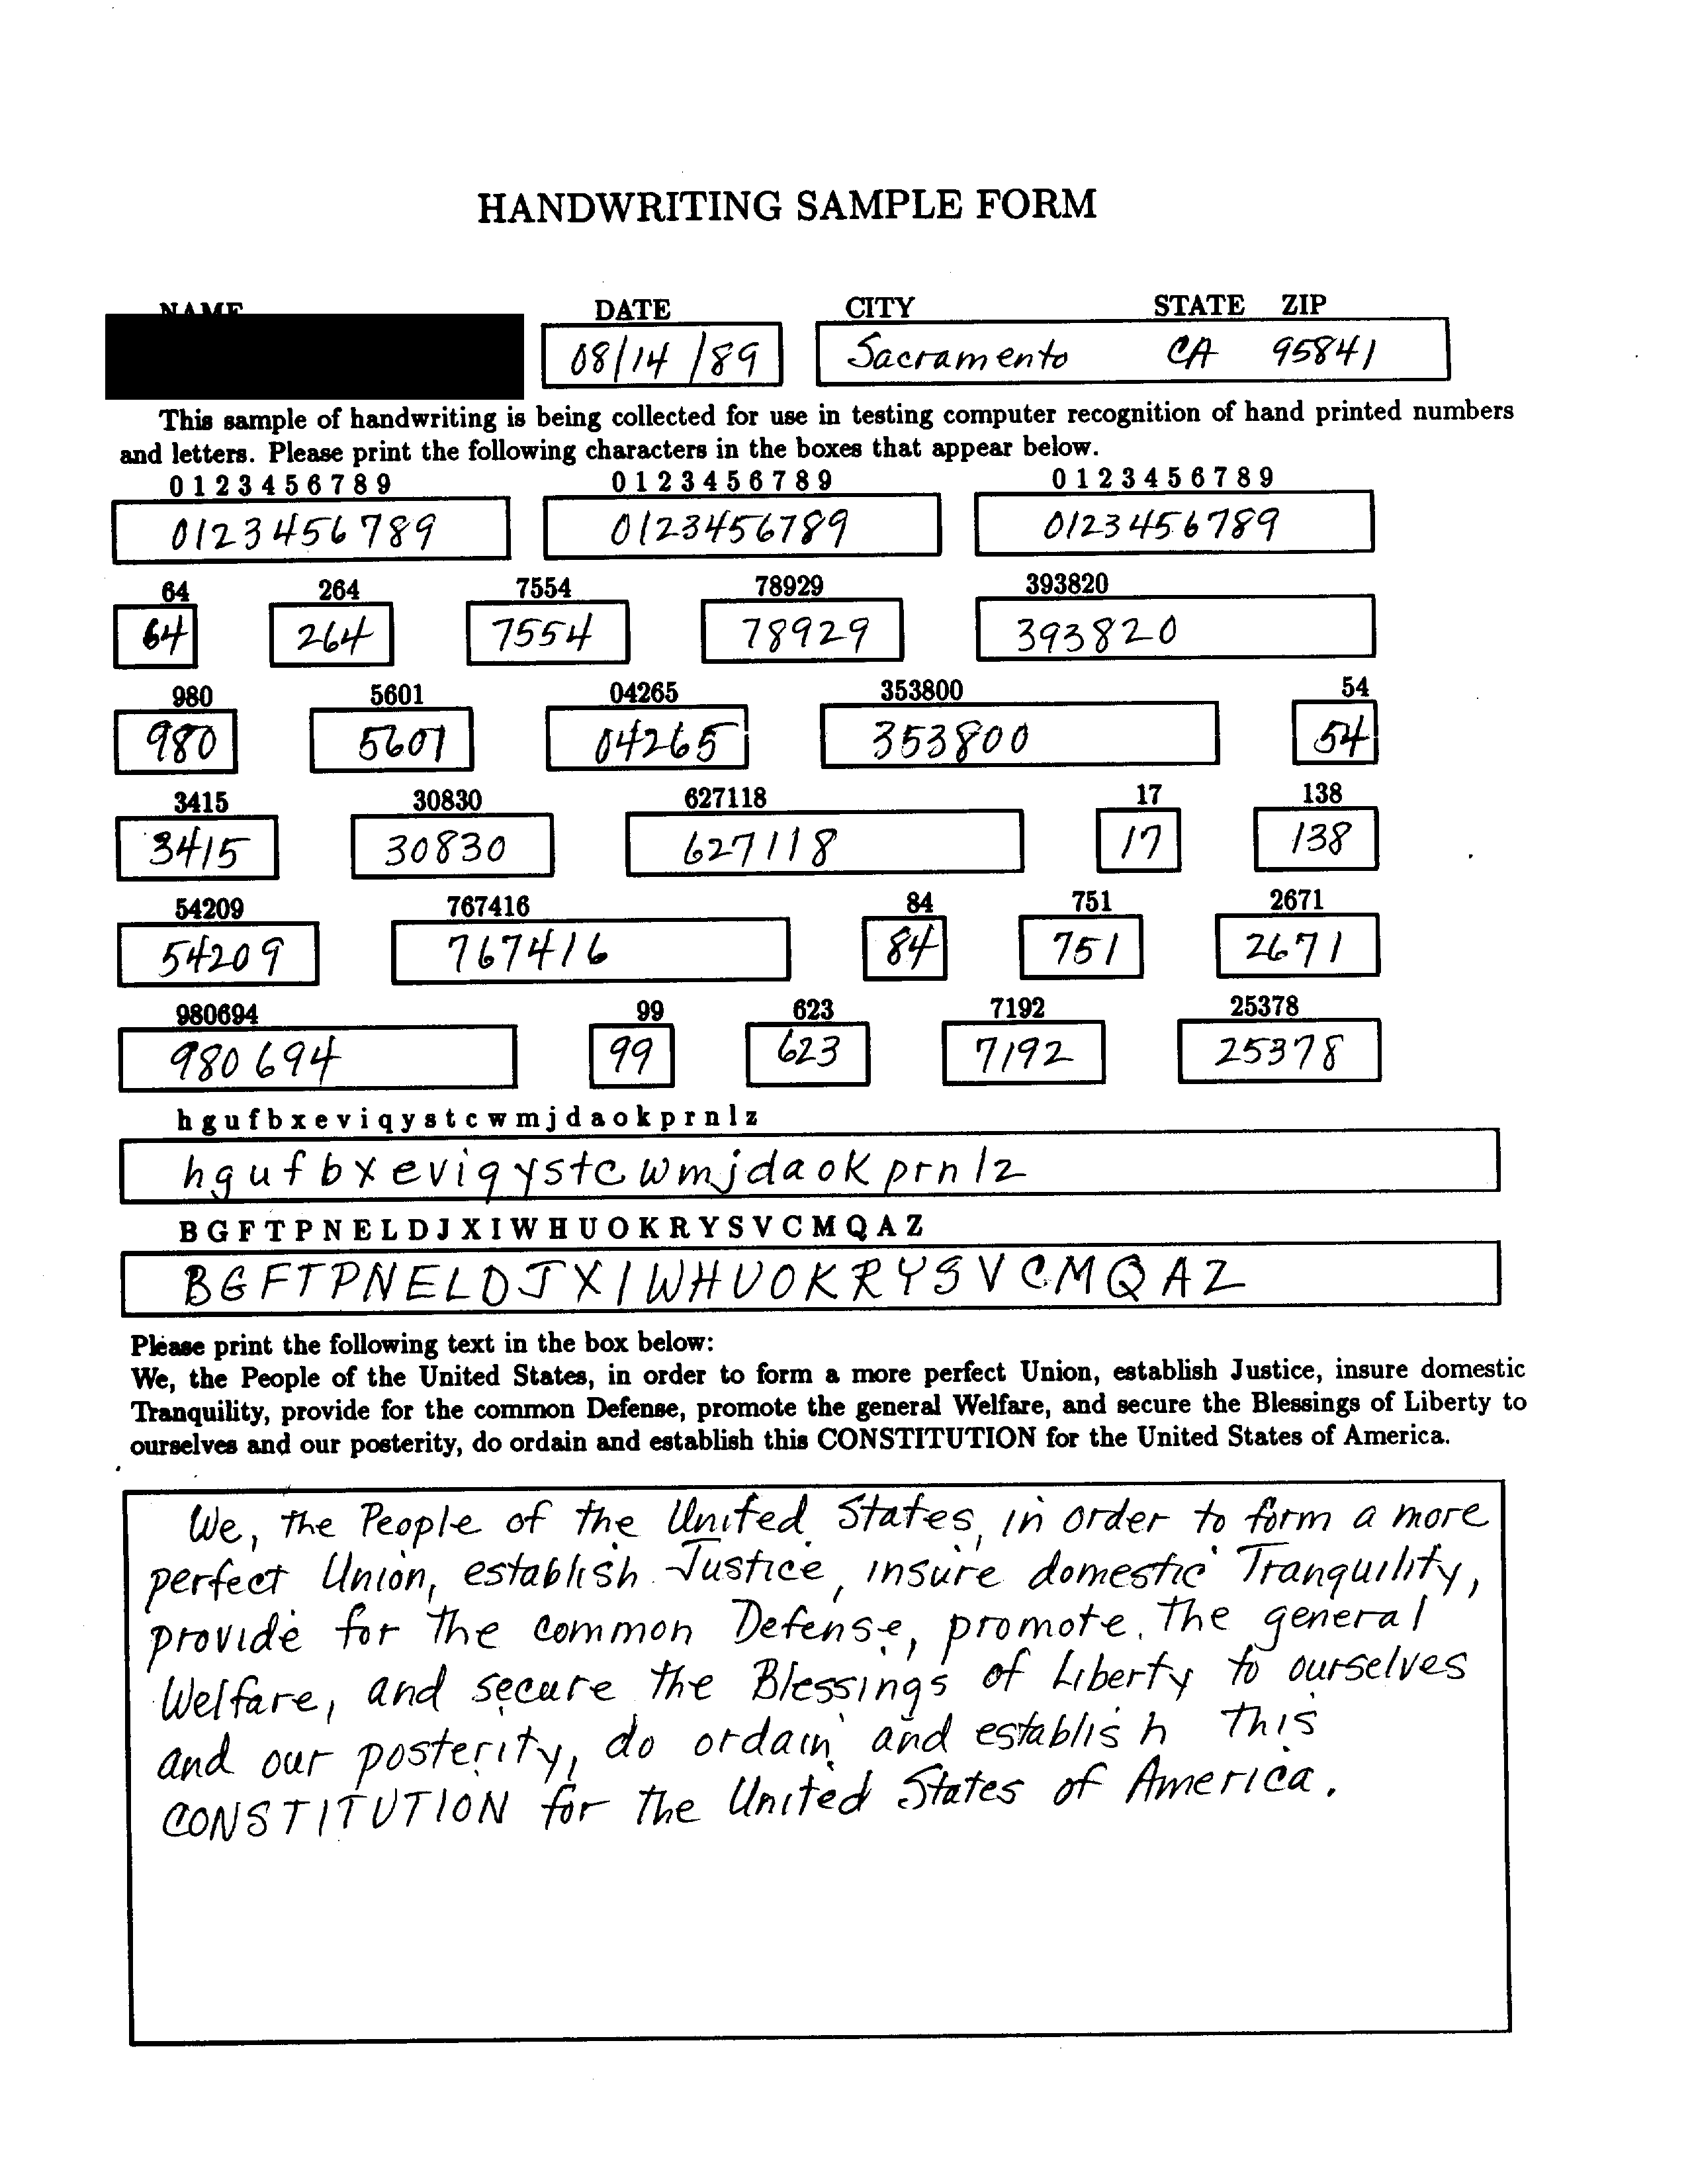 HANDWRITING SAMPLE FORM
NAME DATE CITY STATE ZIP
08/14/89 Sacramento CA 95841
This sample of handwriting is being collected for use in testing computer recognition of hand printed numbers
and letters. Please print the following characters in the boxes that appear below.
0 1 2 3 4 5 6 7 8 9 0 1 2 3 4 5 6 7 8 9 0 1 2 3 4 5 6 7 8 9
0123456789 0123456789 0123456789
64 264 7554 78929 393820
64 264 7554 78929 393820
980 5601 04265 353800 54
980 5601 04265 353800 54
3415 30830 627118 17 138
3415 30830 627118 17 138
54209 767416 84 751 2671
54209 767416 84 751 2671
980694 99 623 7192 25378
980694 99 623 7192 25378
h g u f b x e v i q y s t c w m j d a o k p r n l z
hgufbxeviqystcwmjdaokprnlz
B G F T P N E L D J X I W H U O K R Y S V C M Q A Z
BGFTPNELDJXIWHUOKRYSVCMQAZ
Please print the following text in the box below:
We, the People of the United States, in order to form a more perfect Union, establish Justice, insure domestic
Tranquility, provide for the common Defense, promote the general Welfare, and secure the Blessings of Liberty to
ourselves and our posterity, do ordain and establish this CONSTITUTION for the United States of America.
We, the People of the United States, in order to form a more
perfect Union, establish Justice, insure domestic Tranquility,
provide for the common Defense, promote the general
Welfare, and secure the Blessings of Liberty to ourselves
and our posterity, do ordain and establish this
CONSTITUTION for the United States of America.